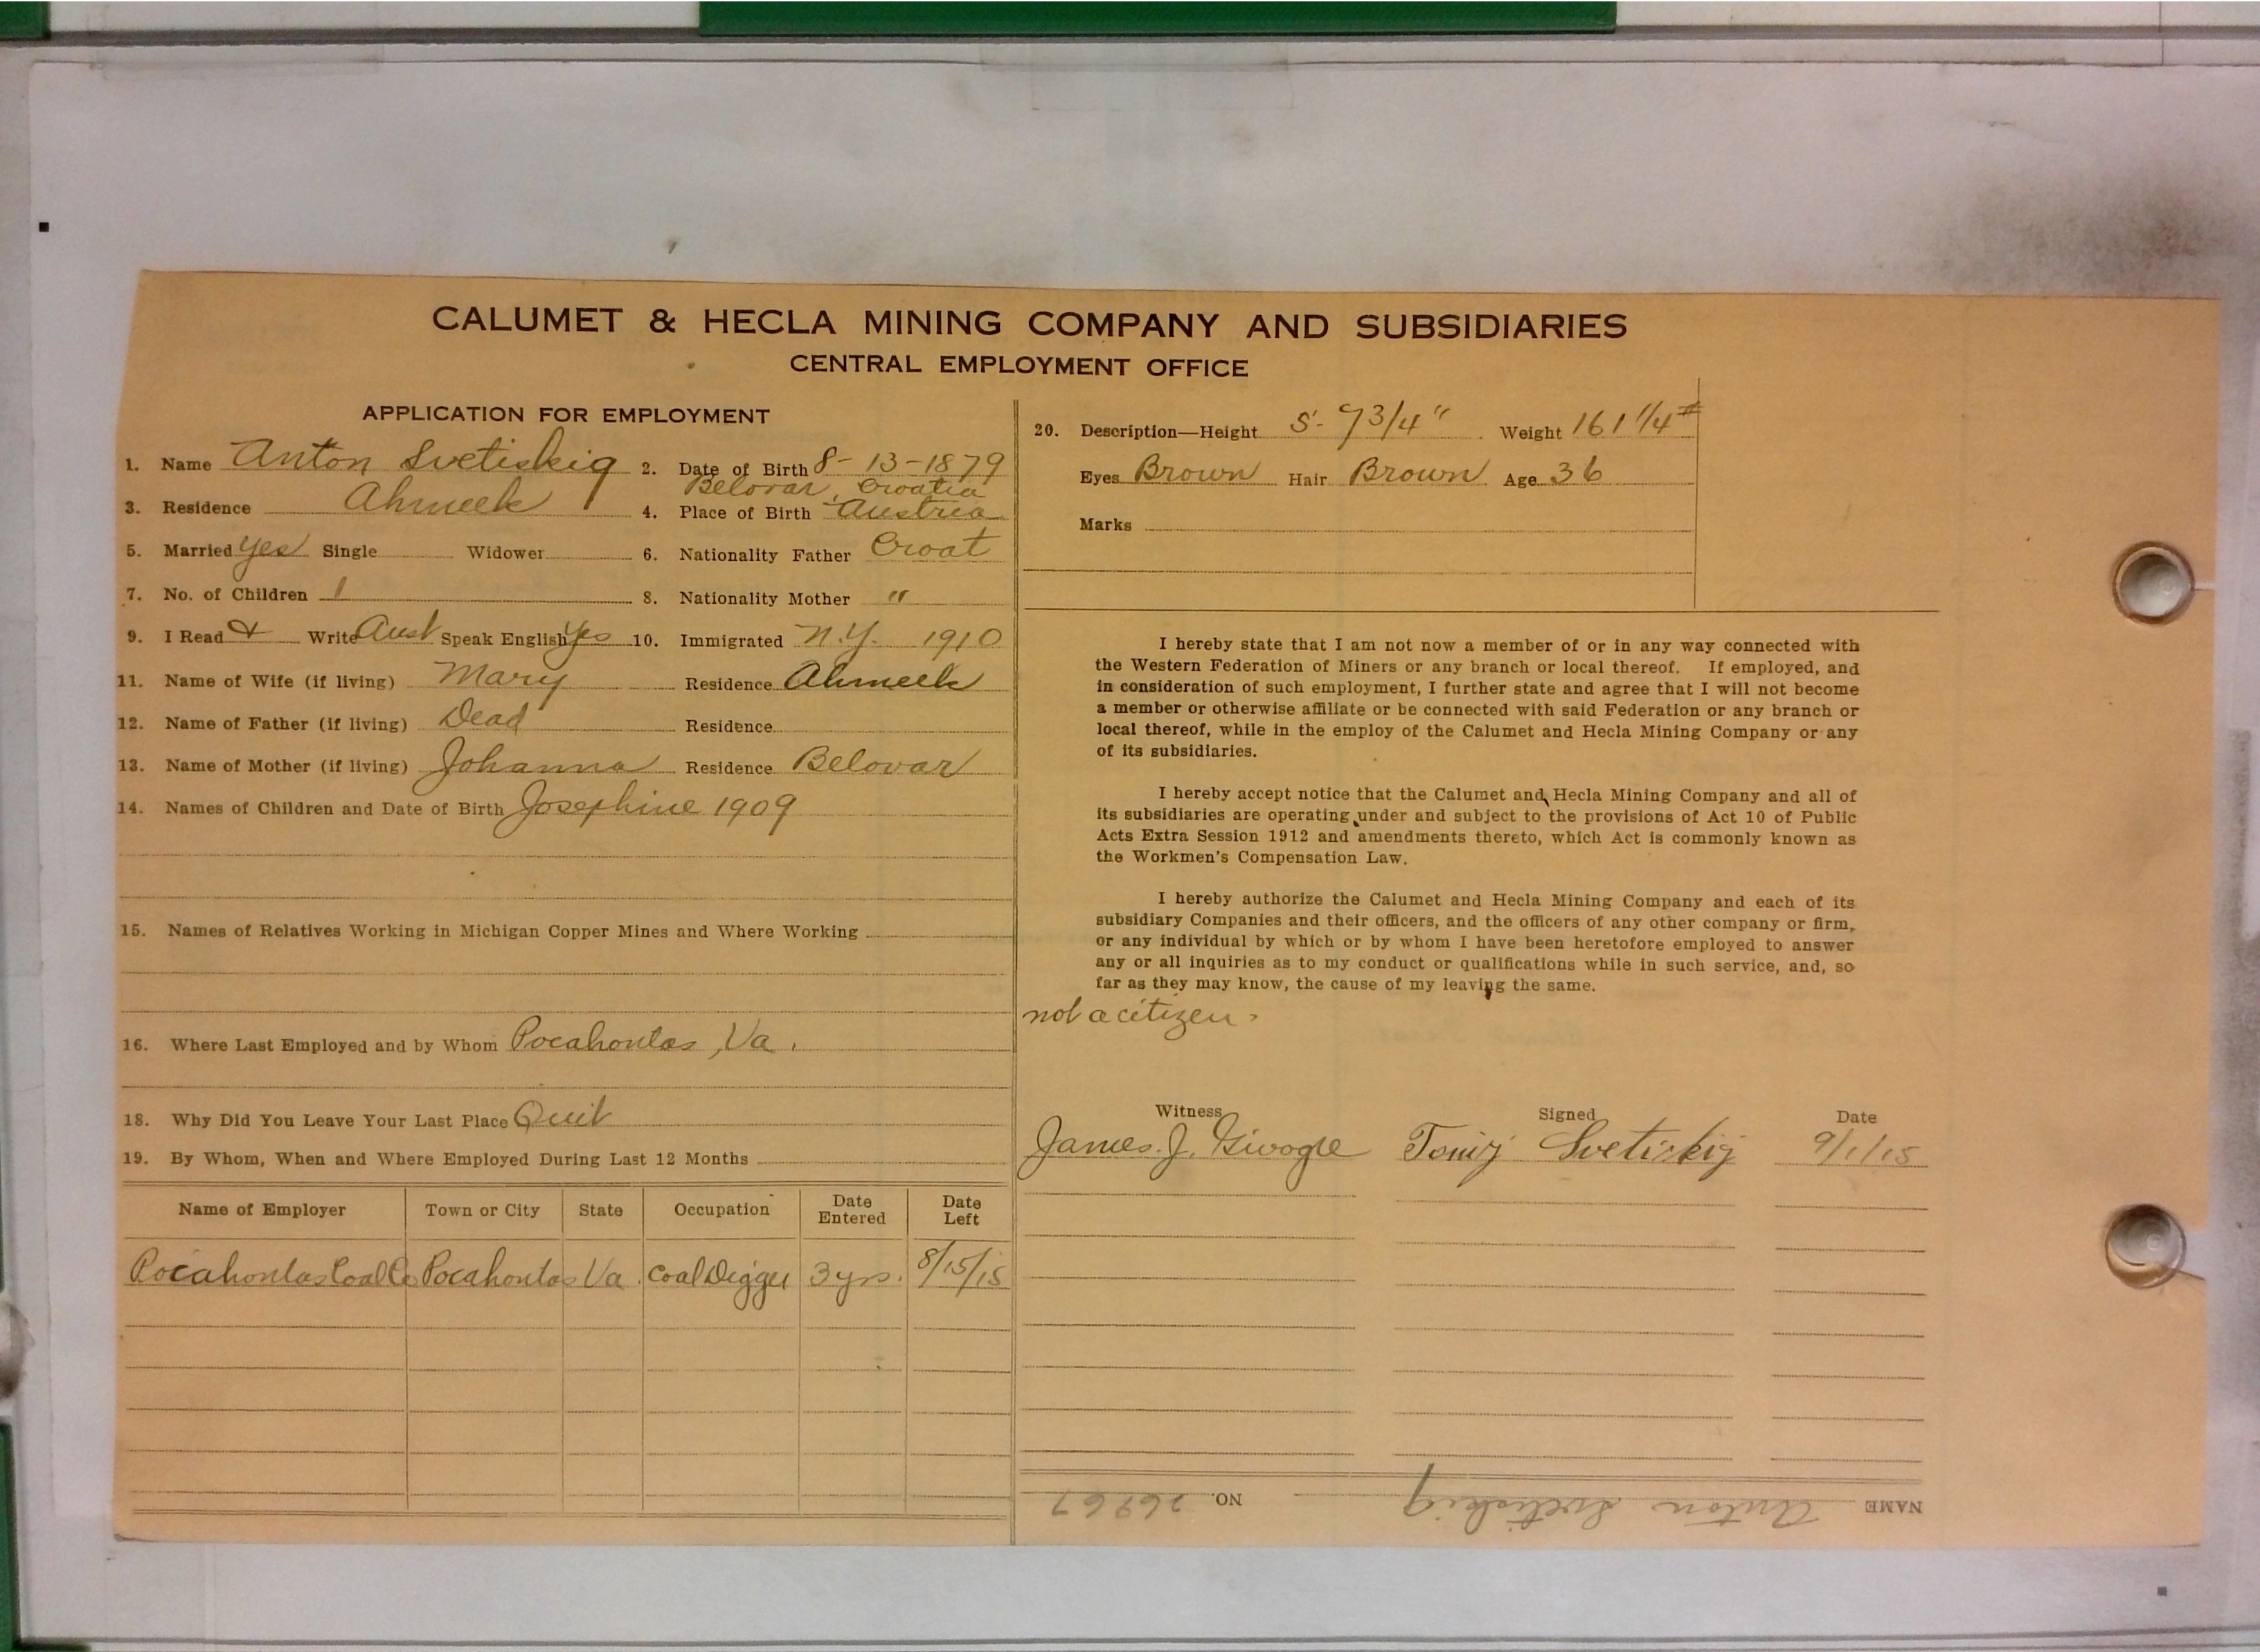 CALUMET & HECLA MINING COMPANY AND SUBSIDIARIES
CENTRAL EMPLOYMENT OFFICE
APPLICATION FOR EMPLOYMENT
1. Name Anton Svetiskig 2. Date of Birth 8-13-1879
Belovar, Croatia
3. Residence Ahmeek 4. Place of Birth Austria
5. Married yes Single Widower 6. Nationality Father Croat
7. No. of Children 1 8. Nationality Mother "
9. I Read & Write Aust Speak English Yes 10. Immigrated N.Y. 1910
11. Name of Wife (if living) Mary Residence Ahmeek
12. Name of Father (if living) Dead Residence
13. Name of Mother (if living) Johanna Residence Belovar
14. Names of Children and Date of Birth Josephine 1909
15. Names of Relatives Working in Michigan Copper Mines and Where Working
16. Where Last Employed and by Whom Pocahontas, Va.
18. Why Did You Leave Your Last Place Quit
19. By Whom, When and Where Employed During Last 12 Months
Name of Employer Town or City State Occupation Date Entered Date Left
Pocahontas Coal Co Pocahontas Va. Coal Digger 3 yrs. 8/15/15
20. Description—Height 5-9 3/4" Weight 161 1/4 #
Eyes Brown Hair Brown Age 36
Marks
I hereby state that I am not now a member of or in any way connected with
the Western Federation of Miners or any branch or local thereof. If employed, and
in consideration of such employment, I further state and agree that I will not become
a member or otherwise affiliate or be connected with said Federation or any branch or
local thereof, while in the employ of the Calumet and Hecla Mining Company or any
of its subsidiaries.
I hereby accept notice that the Calumet and Hecla Mining Company and all of
its subsidiaries are operating under and subject to the provisions of Act 10 of Public
Acts Extra Session 1912 and amendments thereto, which Act is commonly known as
the Workmen's Compensation Law.
I hereby authorize the Calumet and Hecla Mining Company and each of its
subsidiary Companies and their officers, and the officers of any other company or firm,
or any individual by which or by whom I have been heretofore employed to answer
any or all inquiries as to my conduct or qualifications while in such service, and, so
far as they may know, the cause of my leaving the same.
not a citizen.
Witness Signed Date
James. J. Tonij Svetiskij 9/1/15
NAME Anton Svetiskig NO. 26967